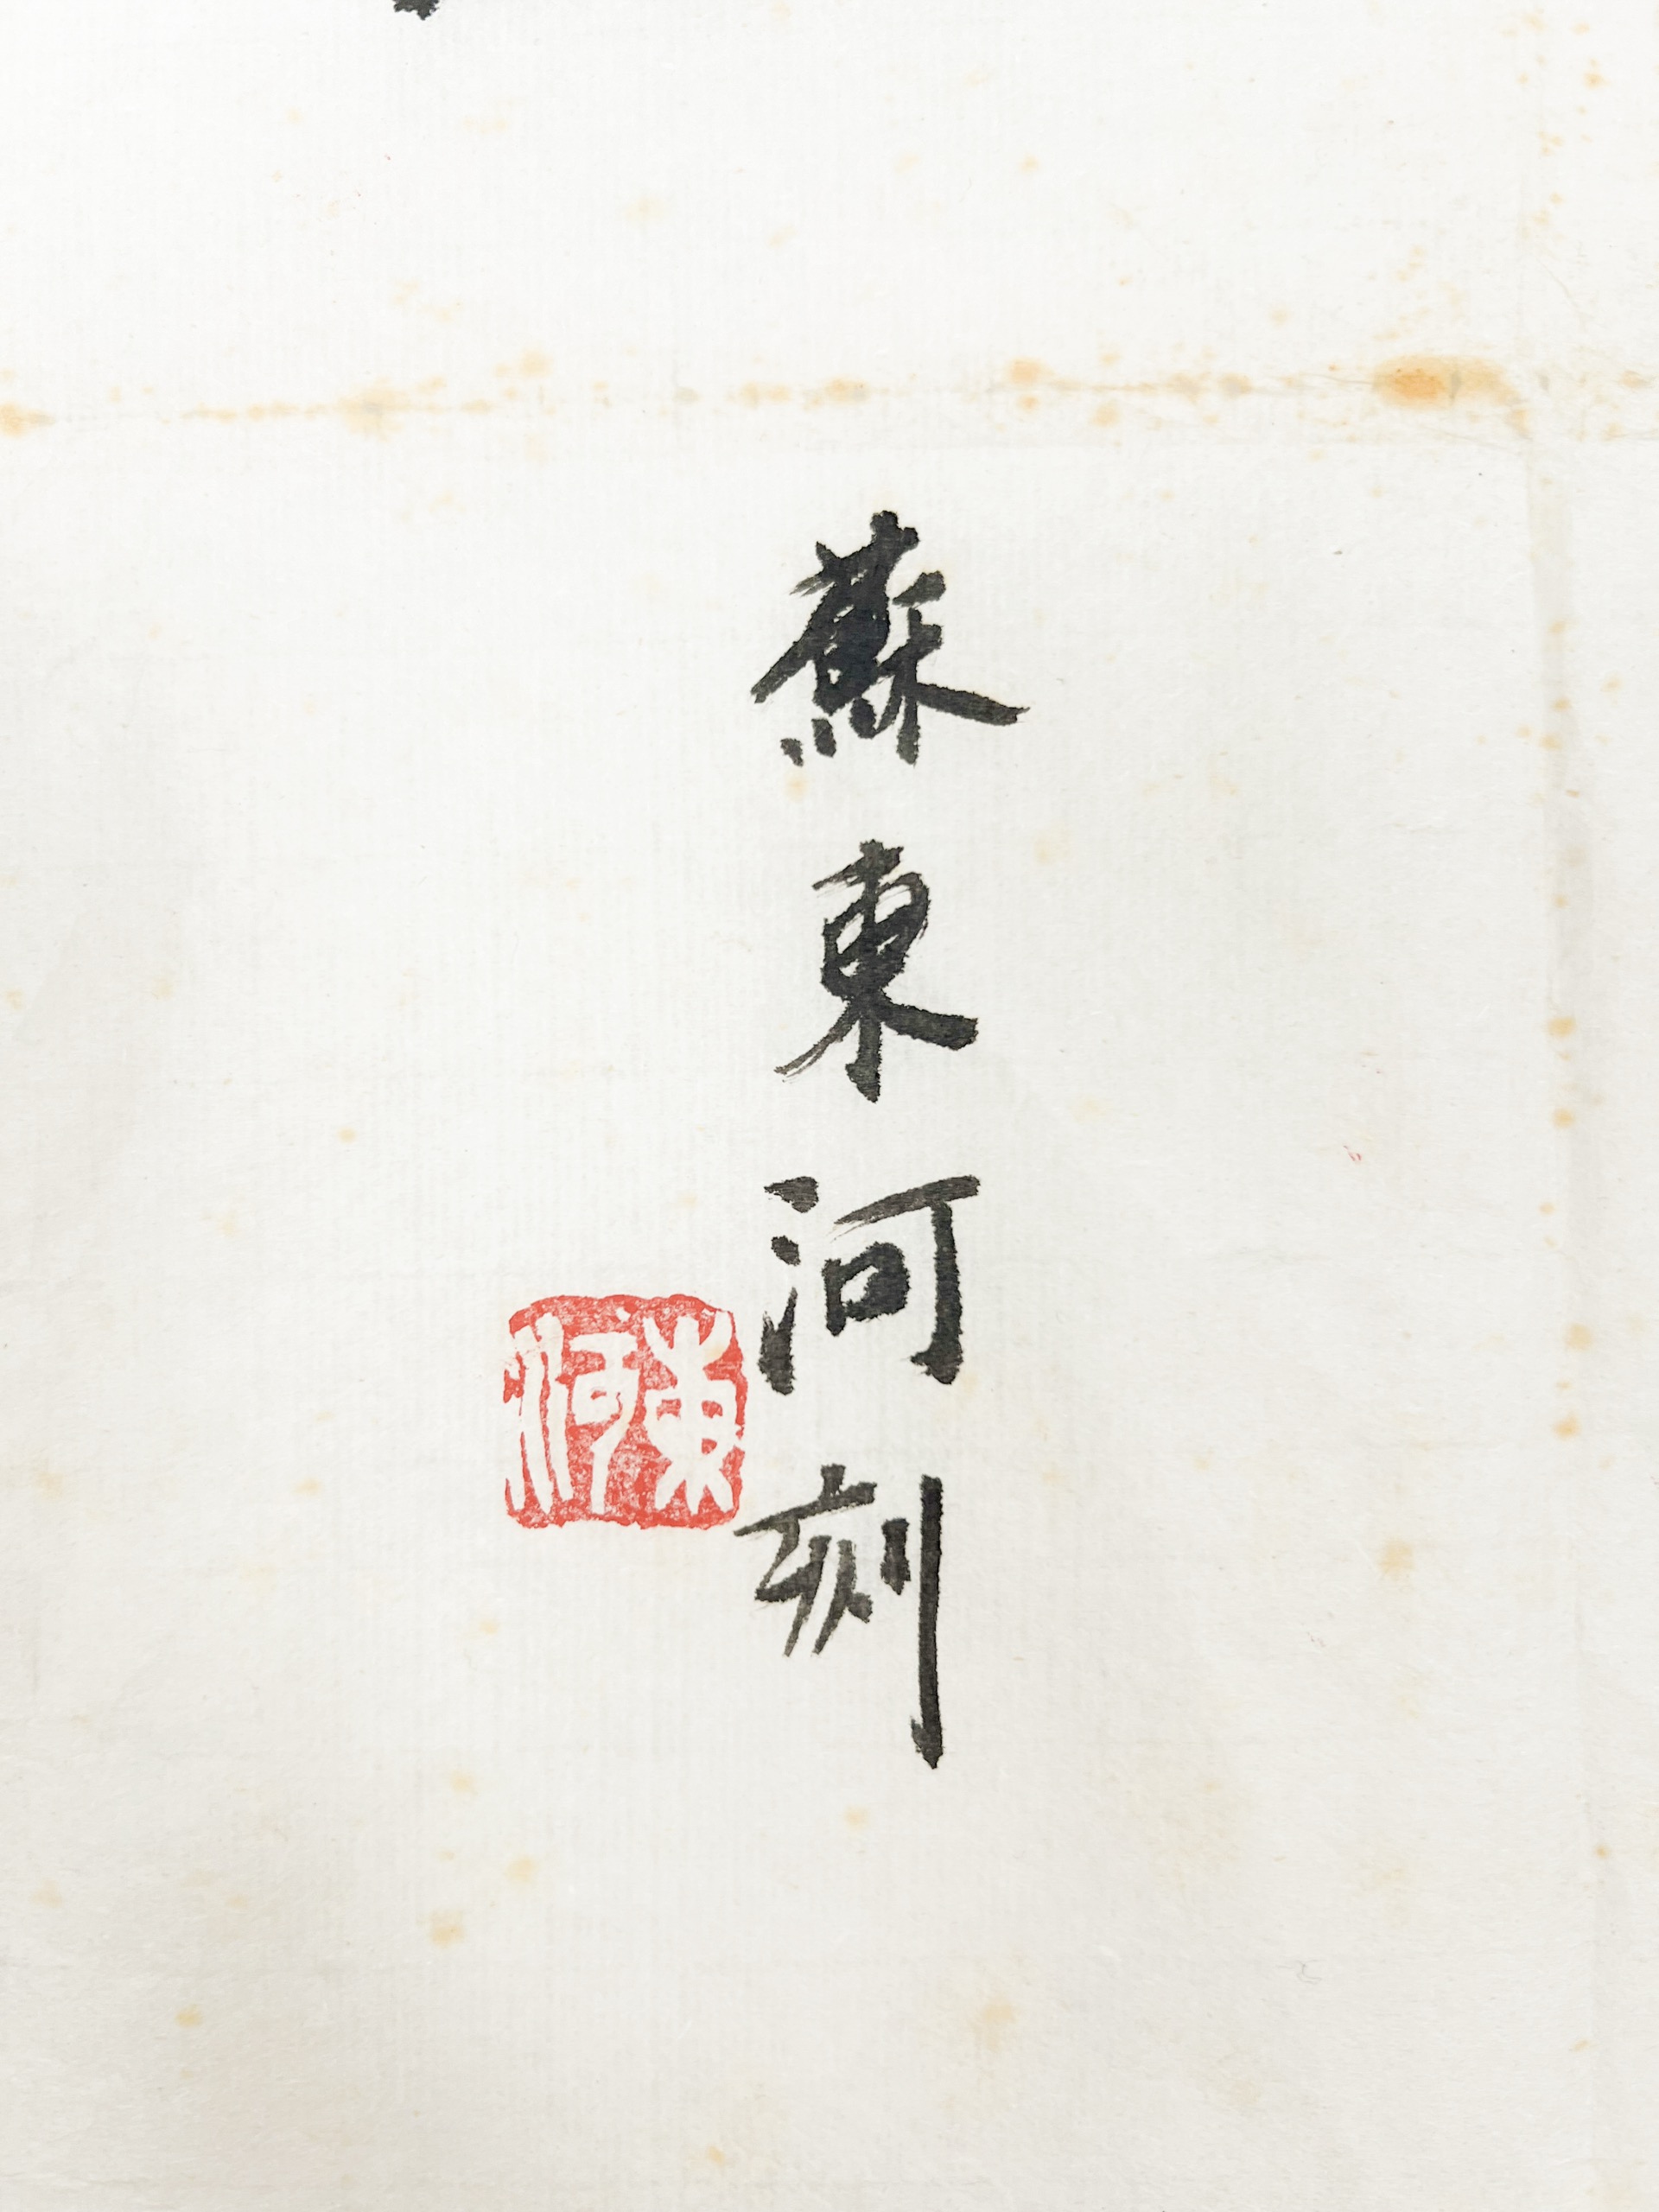 蘇東河刻
東河